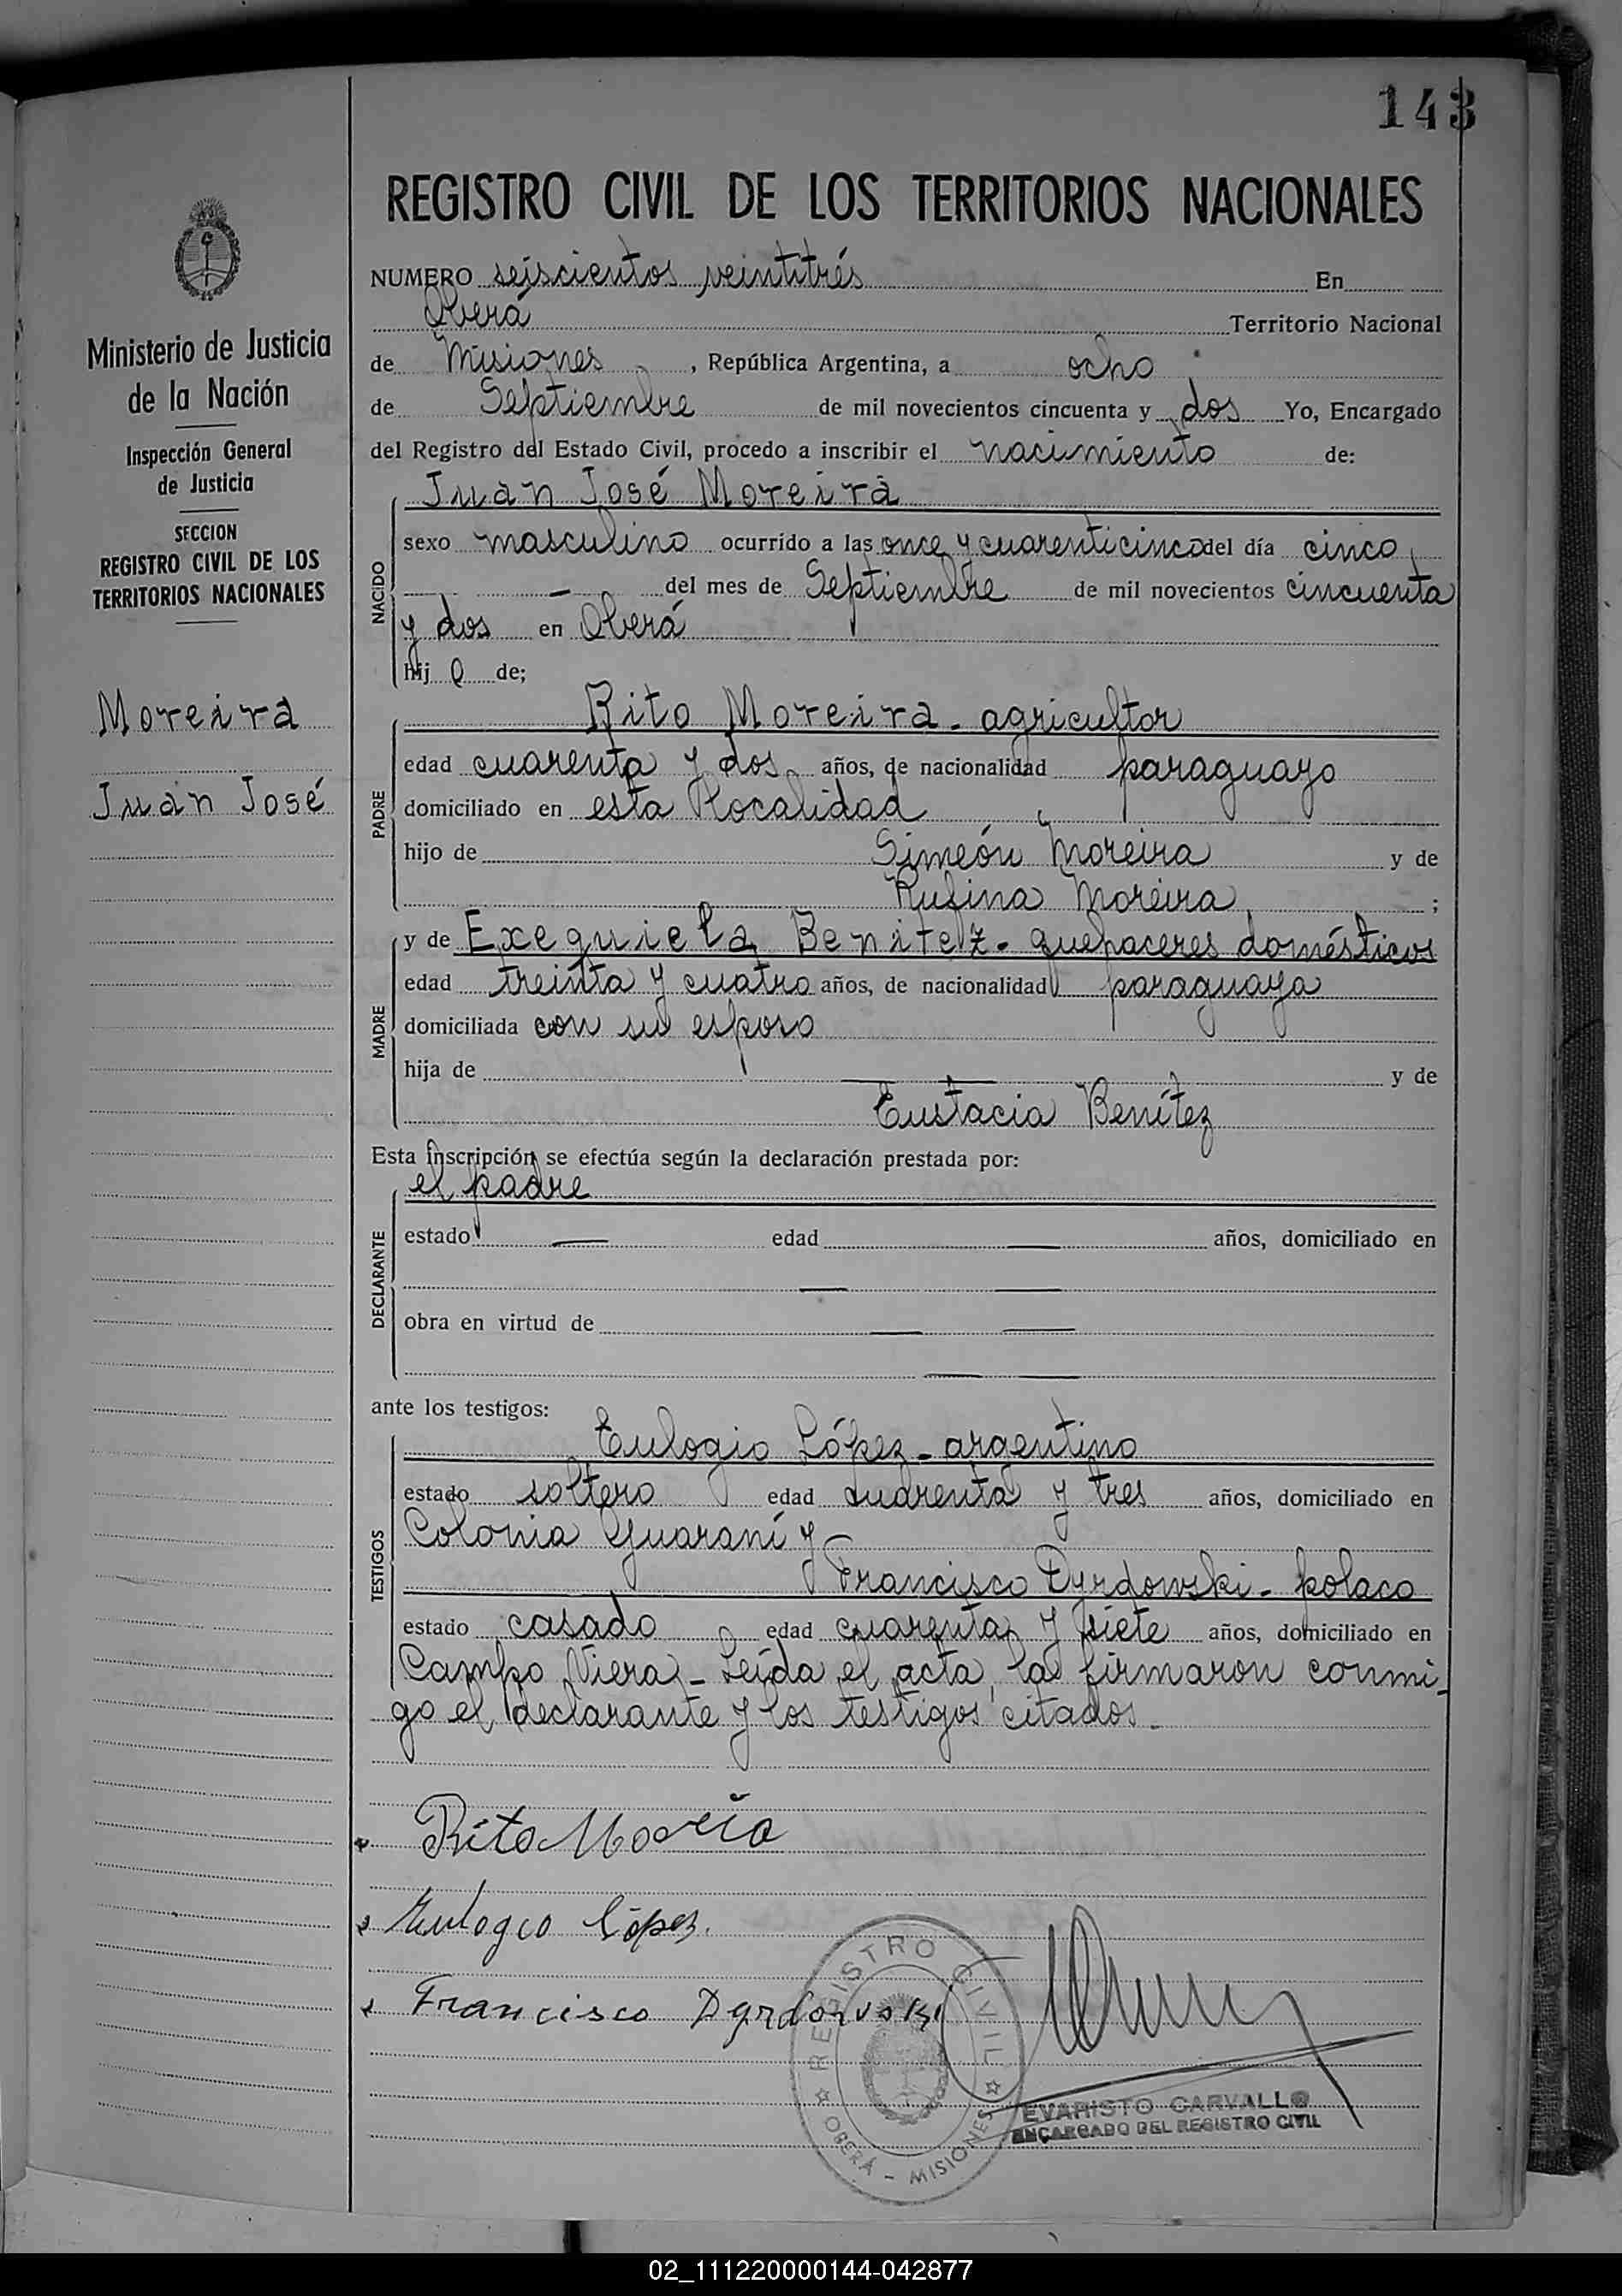 143
REGISTRO CIVIL DE LOS TERRITORIOS NACIONALES
Ministerio de Justicia
de la Nación
Inspección General
de Justicia
SECCION
REGISTRO CIVIL DE LOS
TERRITORIOS NACIONALES
Moreira
Juan José
NUMERO seiscientos veintitrés En
Oberá Territorio Nacional
de Misiones, República Argentina, a ocho
de Septiembre de mil novecientos cincuenta y dos Yo, Encargado
del Registro del Estado Civil, procedo a inscribir el nacimiento de:
NACIDO
Juan José Moreira
sexo masculino ocurrido a las once y cuarenticinco del día cinco
— del mes de Septiembre de mil novecientos cincuenta
y dos en Oberá
hijo de;
PADRE
Rito Moreira - agricultor
edad cuarenta y dos años, de nacionalidad paraguayo
domiciliado en esta localidad
hijo de Simeón Moreira y de
Rufina Moreira ;
MADRE
y de Exequiela Benitez - quehaceres domésticos
edad treinta y cuatro años, de nacionalidad paraguaya
domiciliada con su esposo
hija de — y de
Eustacia Benítez
Esta inscripción se efectúa según la declaración prestada por:
DECLARANTE
el padre
estado — edad — años, domiciliado en
— —
obra en virtud de — —
— —
ante los testigos:
TESTIGOS
Eulogio López - argentino
estado soltero edad cuarenta y tres años, domiciliado en
Colonia Guaraní y
Francisco Dyrdowski - polaco
estado casado edad cuarenta y siete años, domiciliado en
Campo Viera - Leída el acta, la firmaron conmi-
go el declarante y los testigos citados.
Rito
Eulogio López.
Francisco Dyrdowski
REGISTRO CIVIL
OBERÁ - MISIONES
EVARISTO CARVALLO
ENCARGADO DEL REGISTRO CIVIL
02_111220000144-042877